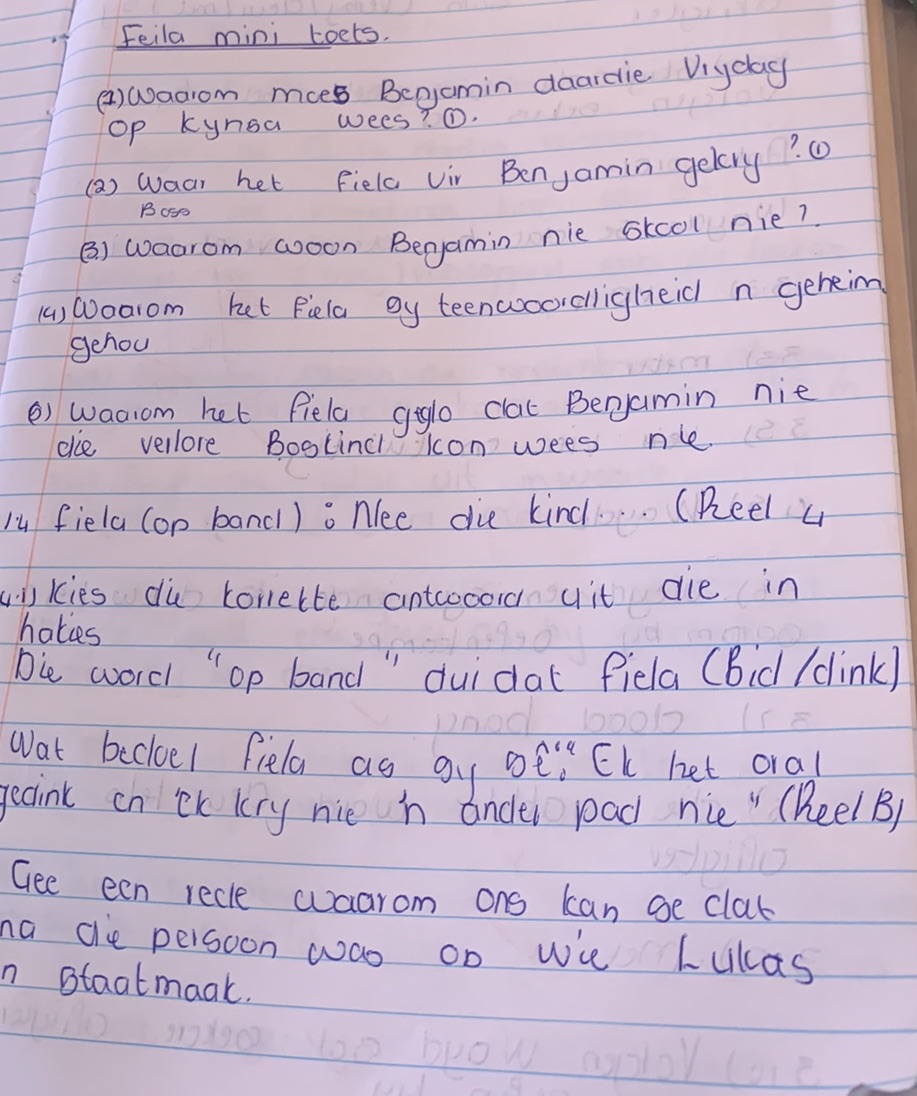 Feila mini toets.
(1) Waarom moes Benjamin daardie Vrydag
op kynsa wees? ①.
(2) Waar het fiela vir Benjamin gekry? ①
Boss
(3) Waarom woon Benjamin nie skool nie?
(4) Waarom het fiela sy teenwoordigheid n geheim
gehou
6) Waarom het fiela geglo dat Benjamin nie
die verlore Boskind kon wees nie.
14 fiela (op band) : Nee die kind.... (Reel 4
4.1) Kies die korrekte antwoord uit die in
hakies
Die word "op band" dui dat fiela (Bid/dink)
Wat bedoel fiela as sy sê: "Ek het oral
gedink en ek kry nie 'n ander pad nie" (Reel B)
Gee een rede waarom ons kan se dat
na die persoon was op wie Lukas
n staatmaak.